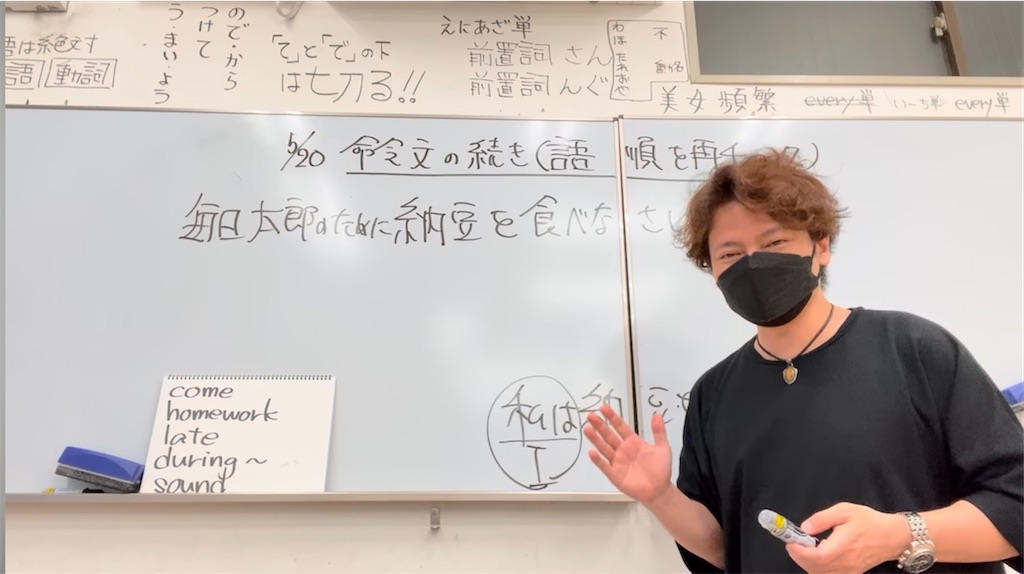 語は絶文す
語 動詞
ので・から
つけて
う・まい・よう
「て」と「で」の下
は七刀る!!
えにあざ単
前置詞 さん
前置詞 んぐ
不
美女頻繁 every単 いーち単 every単
5/20 命令文の続き(語順を再チ
毎日太郎のために納豆を食べなさ
私は納豆
I
come
homework
late
during~
sound